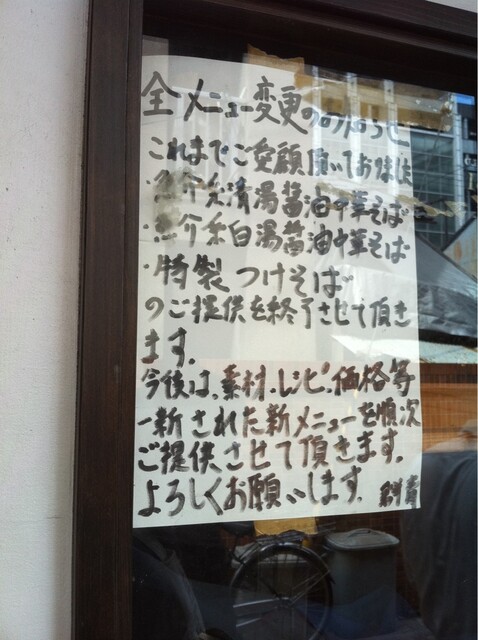 全メニュー変更のお知らせ
これまでご愛顧頂いてお味は
・魚介系清湯醤油中華そば
・魚介系白湯醤油中華そば
・特製つけそば
のご提供を終了させて頂き
ます。
今後は、素材、レシピ、価格等
一新された新メニューを順次
ご提供させて頂きます。
よろしくお願いします。